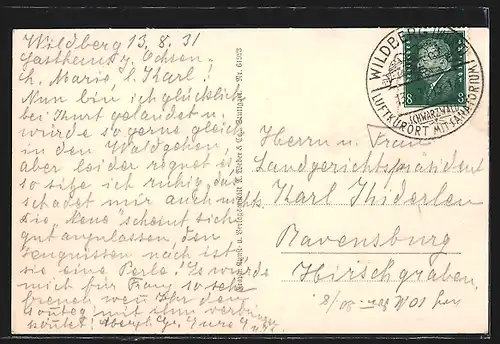 Wildberg 13.8.31
Gasthein z. Ochsen.
L. Marie, l. Karl!
Nun bin ich glücklich
bei Kurt gelandet u.
würde so gerne gleich
in den Wald gehen,
aber leider regnet es
so sitze ich ruhig, das
schadet mir auch nichts.
Die "Neue" scheint sich
gut anzulassen, den
Zeugnissen nach ist
sie eine Perle! Es würde
mich für so sehr
freuen wenn Ihr den
Sonntag mit ihm verbringen
könntet! Gr. Eure
Nr. 64333
WILDBERG
SCHWARZWALD
LUFTKURORT MIT FAHRTÖRD
8
8
Herrn u. Frau
Landgerichtspräsident
Karl Kiderlen
Ravensburg
Hirschgraben,